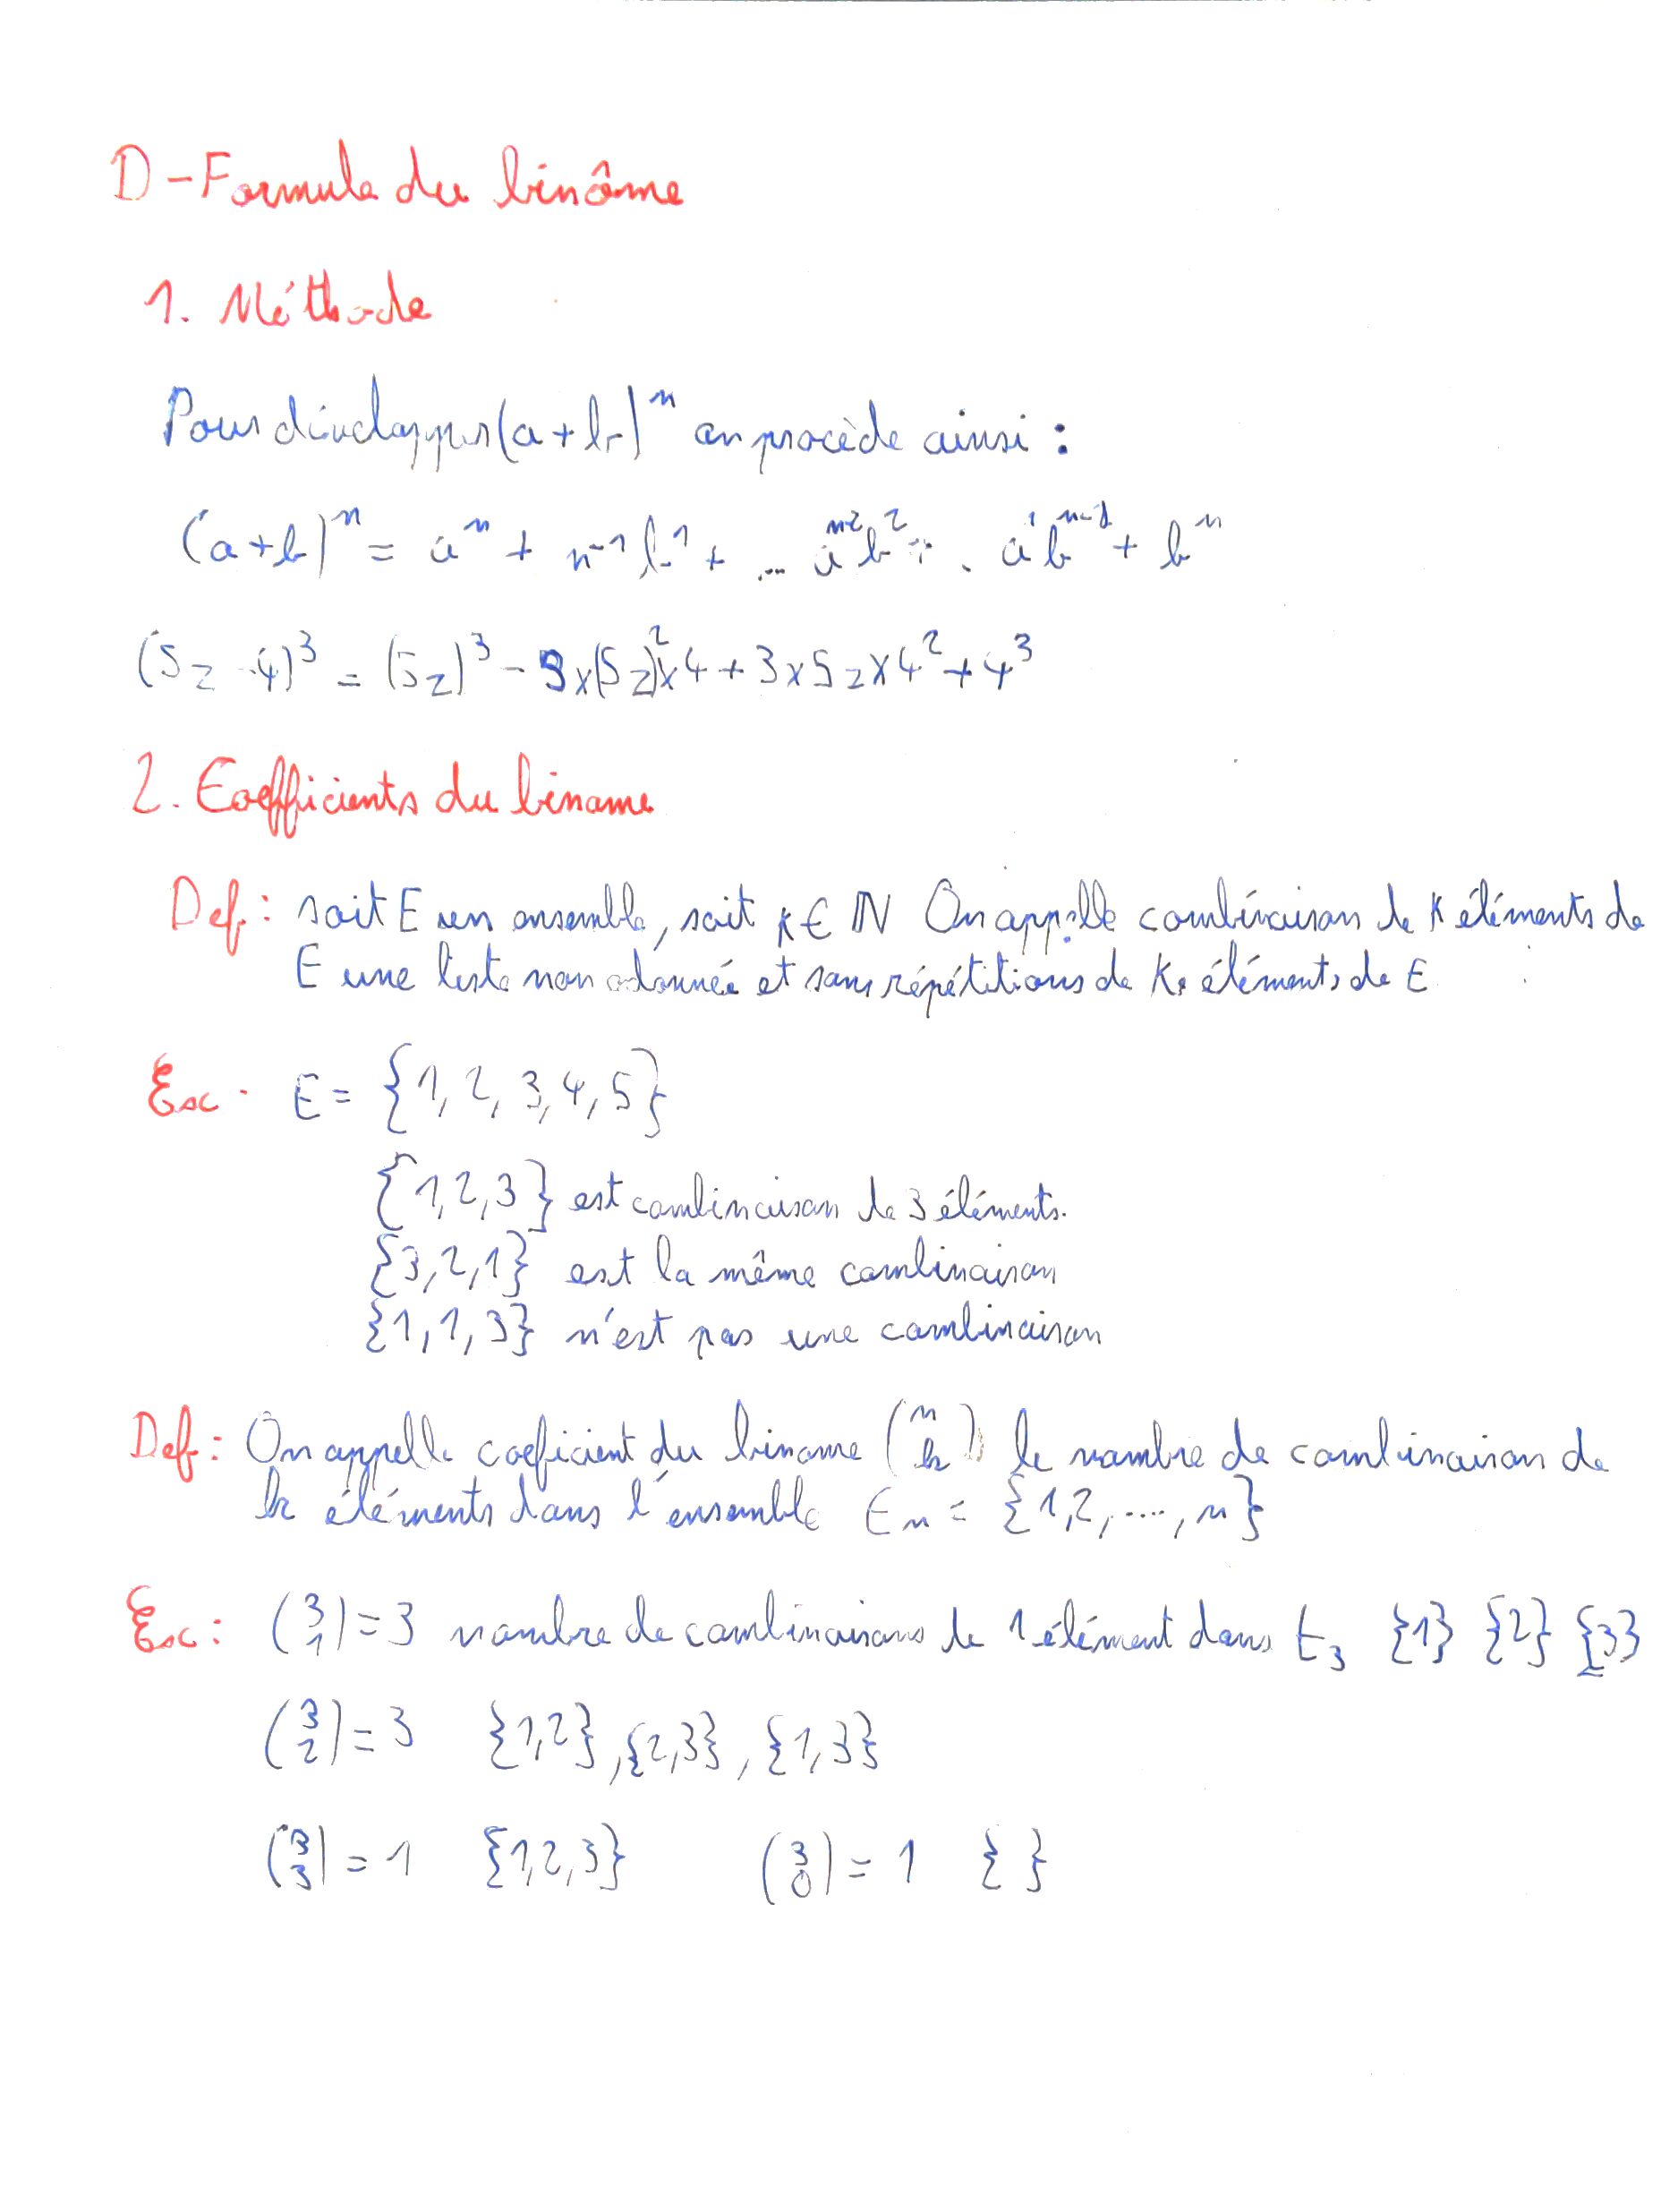 D - Formule du binôme
1. Méthode
Pour développer (a+b)^n on procède ainsi :
(a+b)^n = a^n + n-1 b^1 + ... a^n-2 b^2 + . a^1 b^n-1 + b^n
(5z - 4)^3 = (5z)^3 - 3x(5z)^2 x4 + 3x5zx4^2 + 4^3
2. Coefficients du binome
Def : soit E un ensemble, soit k ∈ ℕ On appelle combinaison de k éléments de
E une liste non ordonnée et sans répétitions de k éléments de E
Ex . E = {1, 2, 3, 4, 5}
{1,2,3} est combinaison de 3 éléments.
{3,2,1} est la même combinaison
{1,1,3} n'est pas une combinaison
Def : On appelle coeficient du binome (n k) le nombre de combinaison de
k éléments dans l'ensemble En = {1,2, ...., n}
Ex : (3 1) = 3 nombre de combinaisons de 1 élément dans E3 {1} {2} {3}
(3 2) = 3 {1,2}, {2,3}, {1,3}
(3 3) = 1 {1,2,3} (3 0) = 1 { }